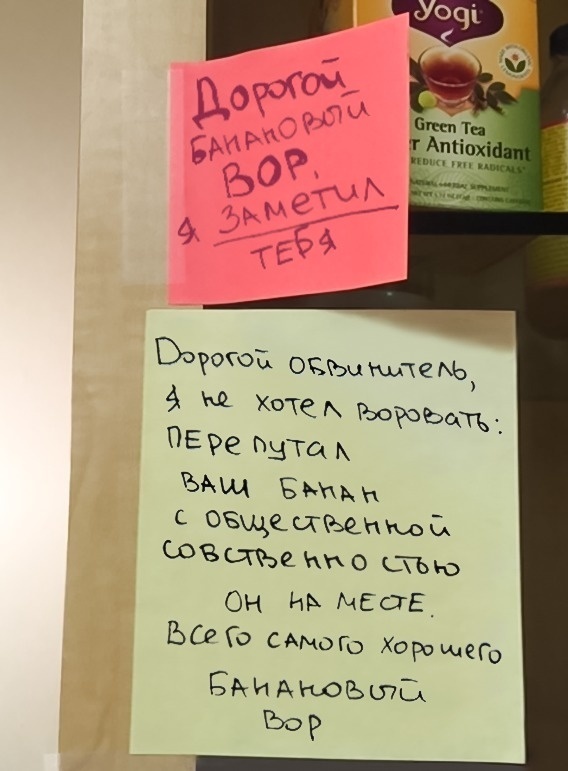 yogi
Green Tea
r Antioxidant
REDUCE FREE RADICALS*
Дорогой
БАНАНОВЫЙ
ВОР,
Я ЗАМЕТИЛ
ТЕБЯ
Дорогой обвинитель,
Я не хотел воровать:
ПЕРЕПУТАЛ
ВАШ БАНАН
С ОБЩЕСТВЕННОЙ
СОБСТВЕННОСТЬЮ
ОН НА МЕСТЕ.
Всего самого хорошего
БАНАНОВЫЙ
ВОР